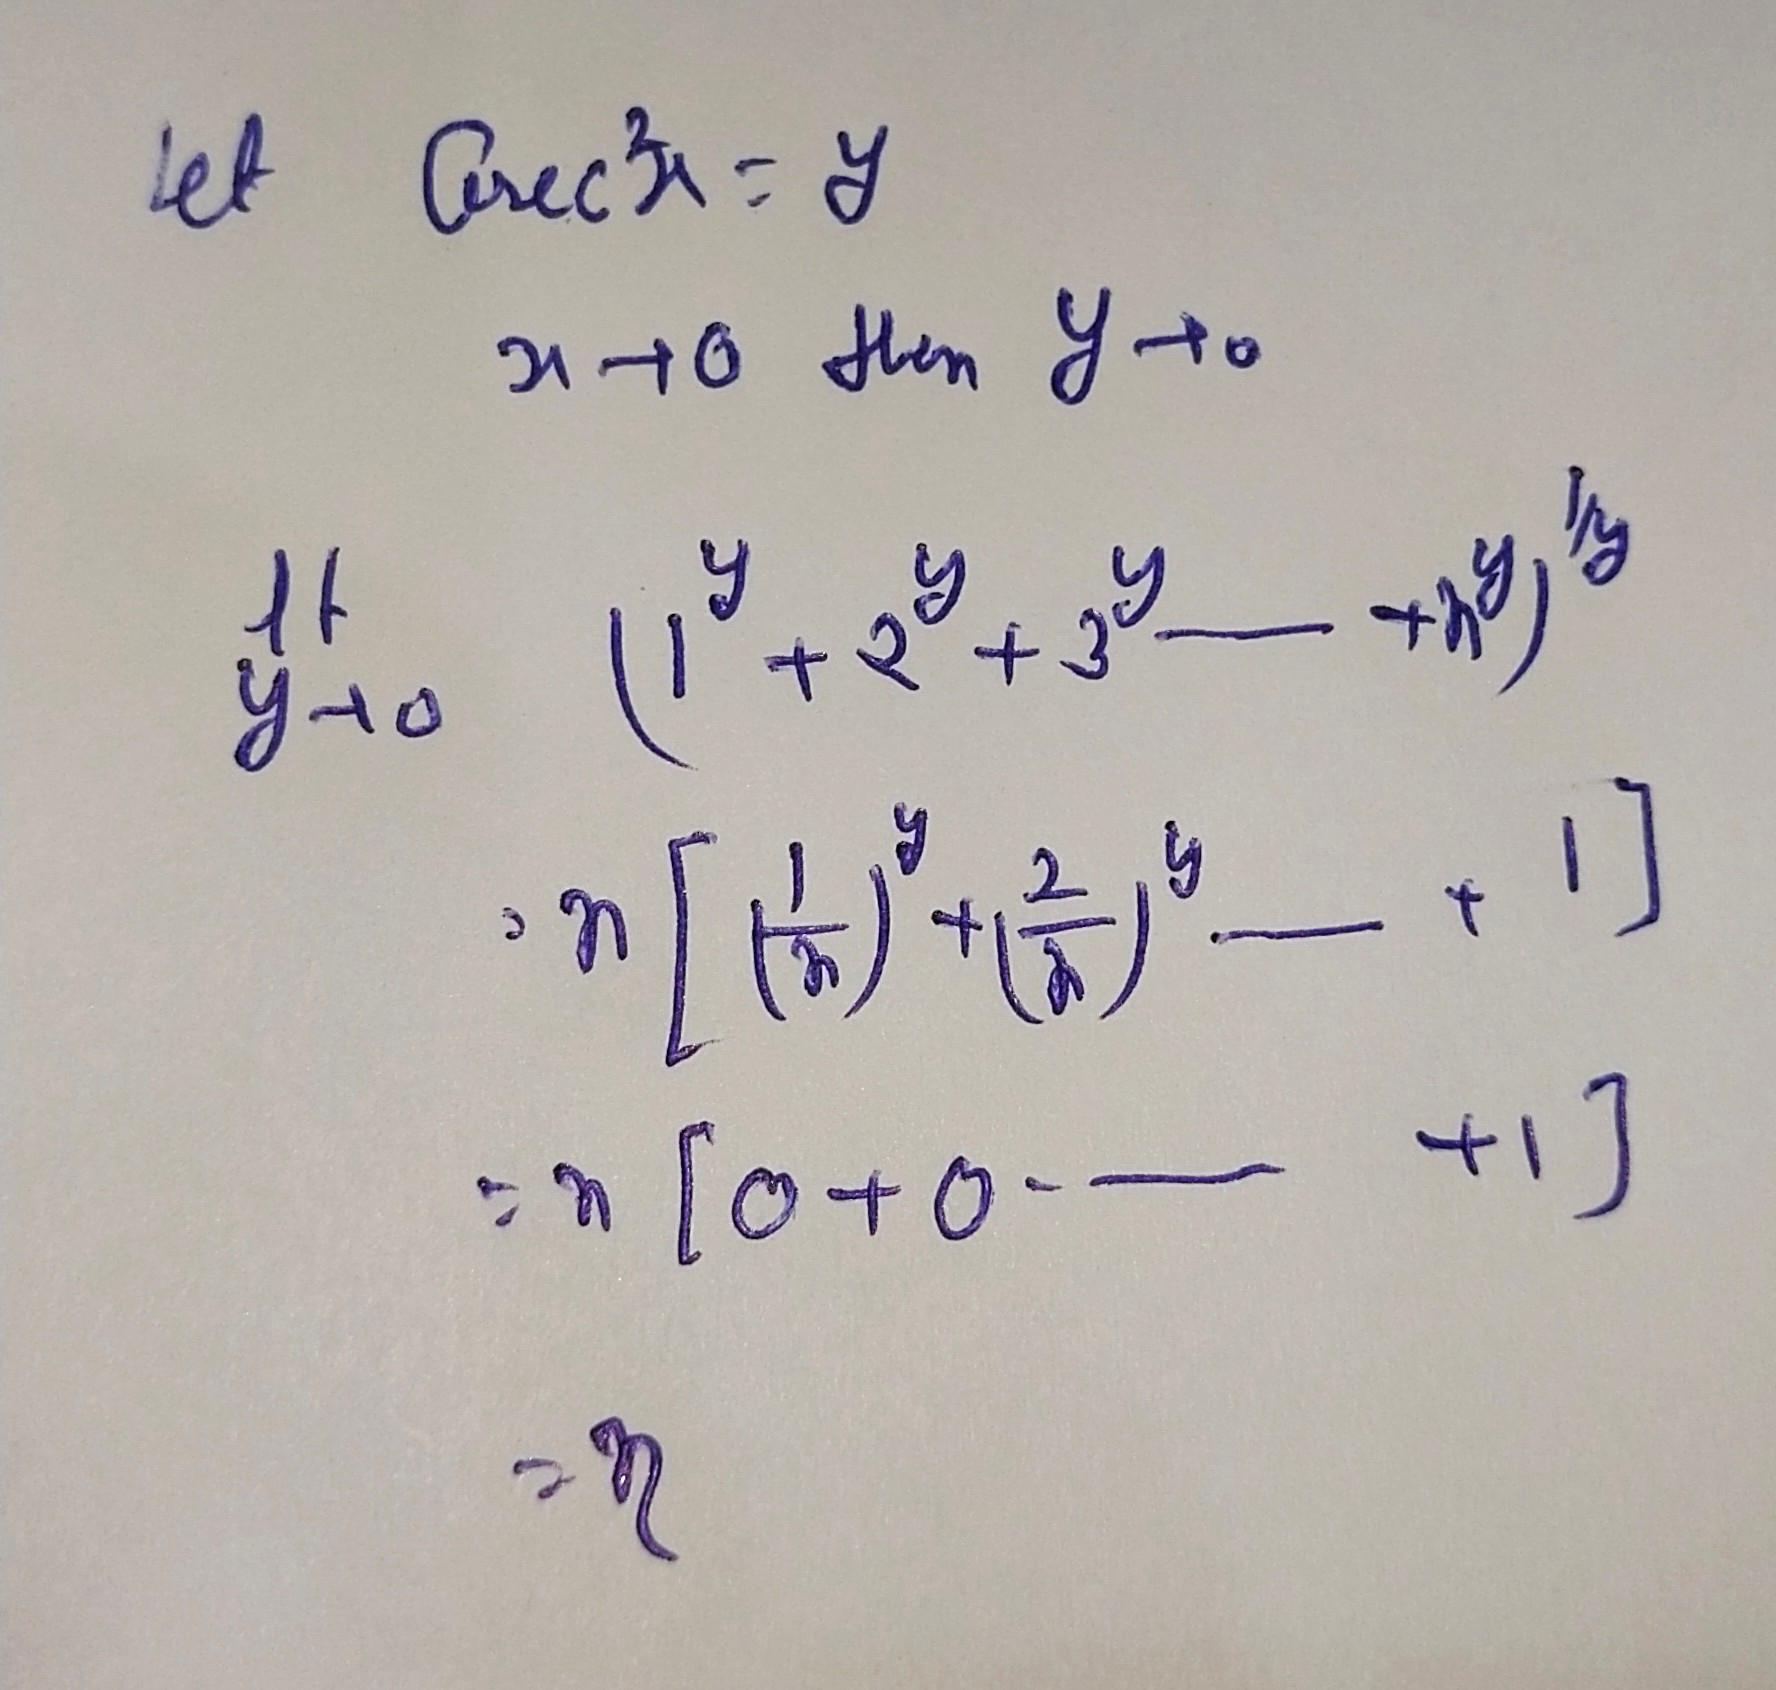 Let Cosec²x = y
x → 0 then y → 0
lt y→0 (1^y + 2^y + 3^y — + n^y)^1/y
= n [(1/n)^y + (2/n)^y — + 1]
= n [0 + 0 - — + 1]
= n